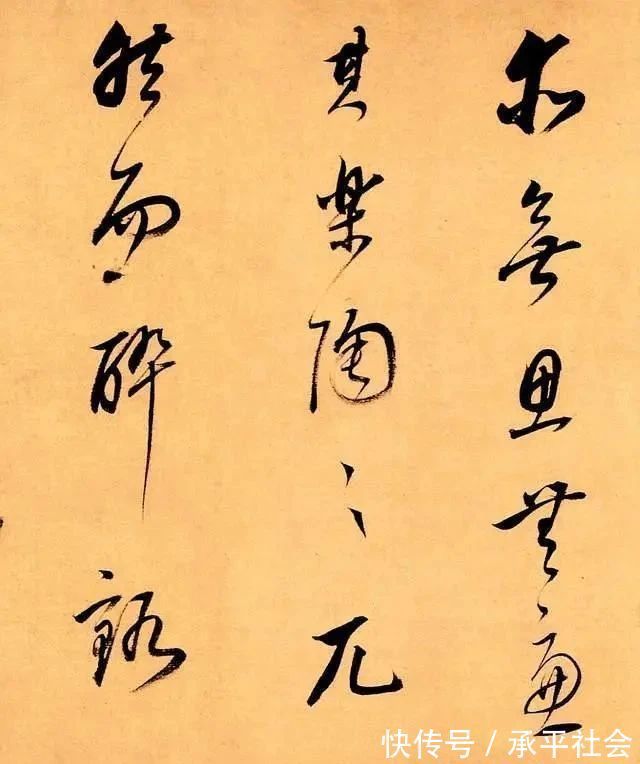 無思無慮
其樂陶々兀
然而醉豁
快传号 / 承平社会